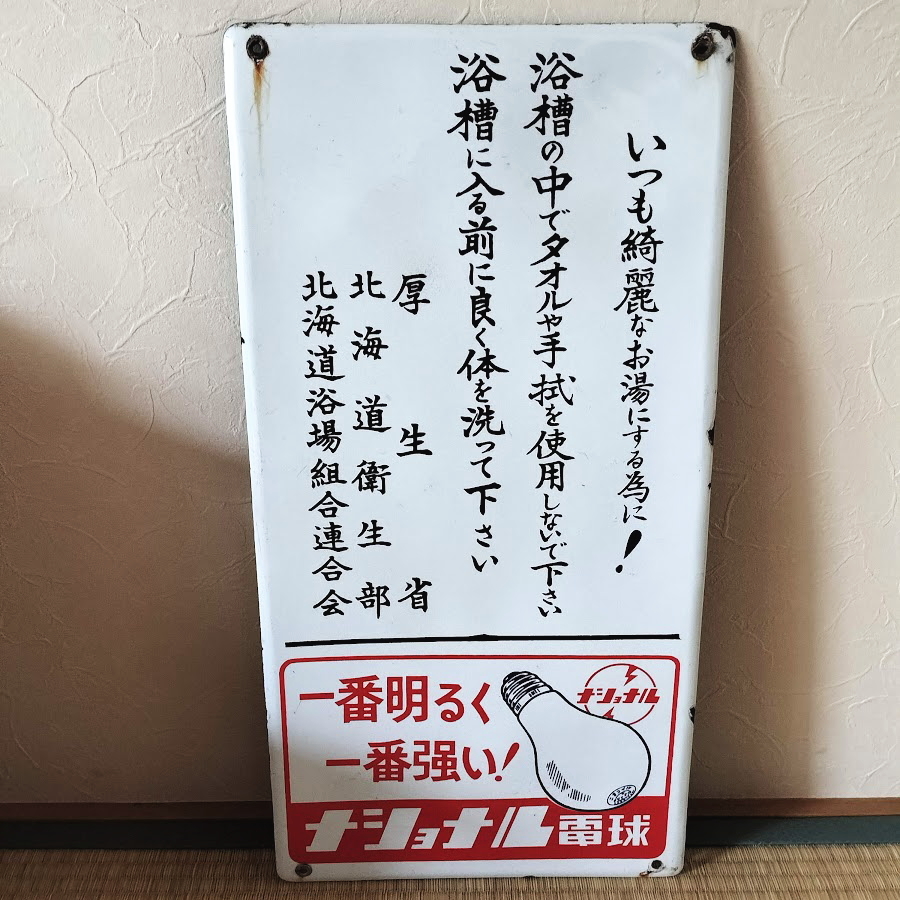 いつも綺麗なお湯にする為に!
浴槽の中でタオルや手拭を使用しないで下さい
浴槽に入る前に良く体を洗って下さい
厚生省
北海道衛生部
北海道浴場組合連合会
一番明るく
一番强い!
ナショナル
ナショナル電球